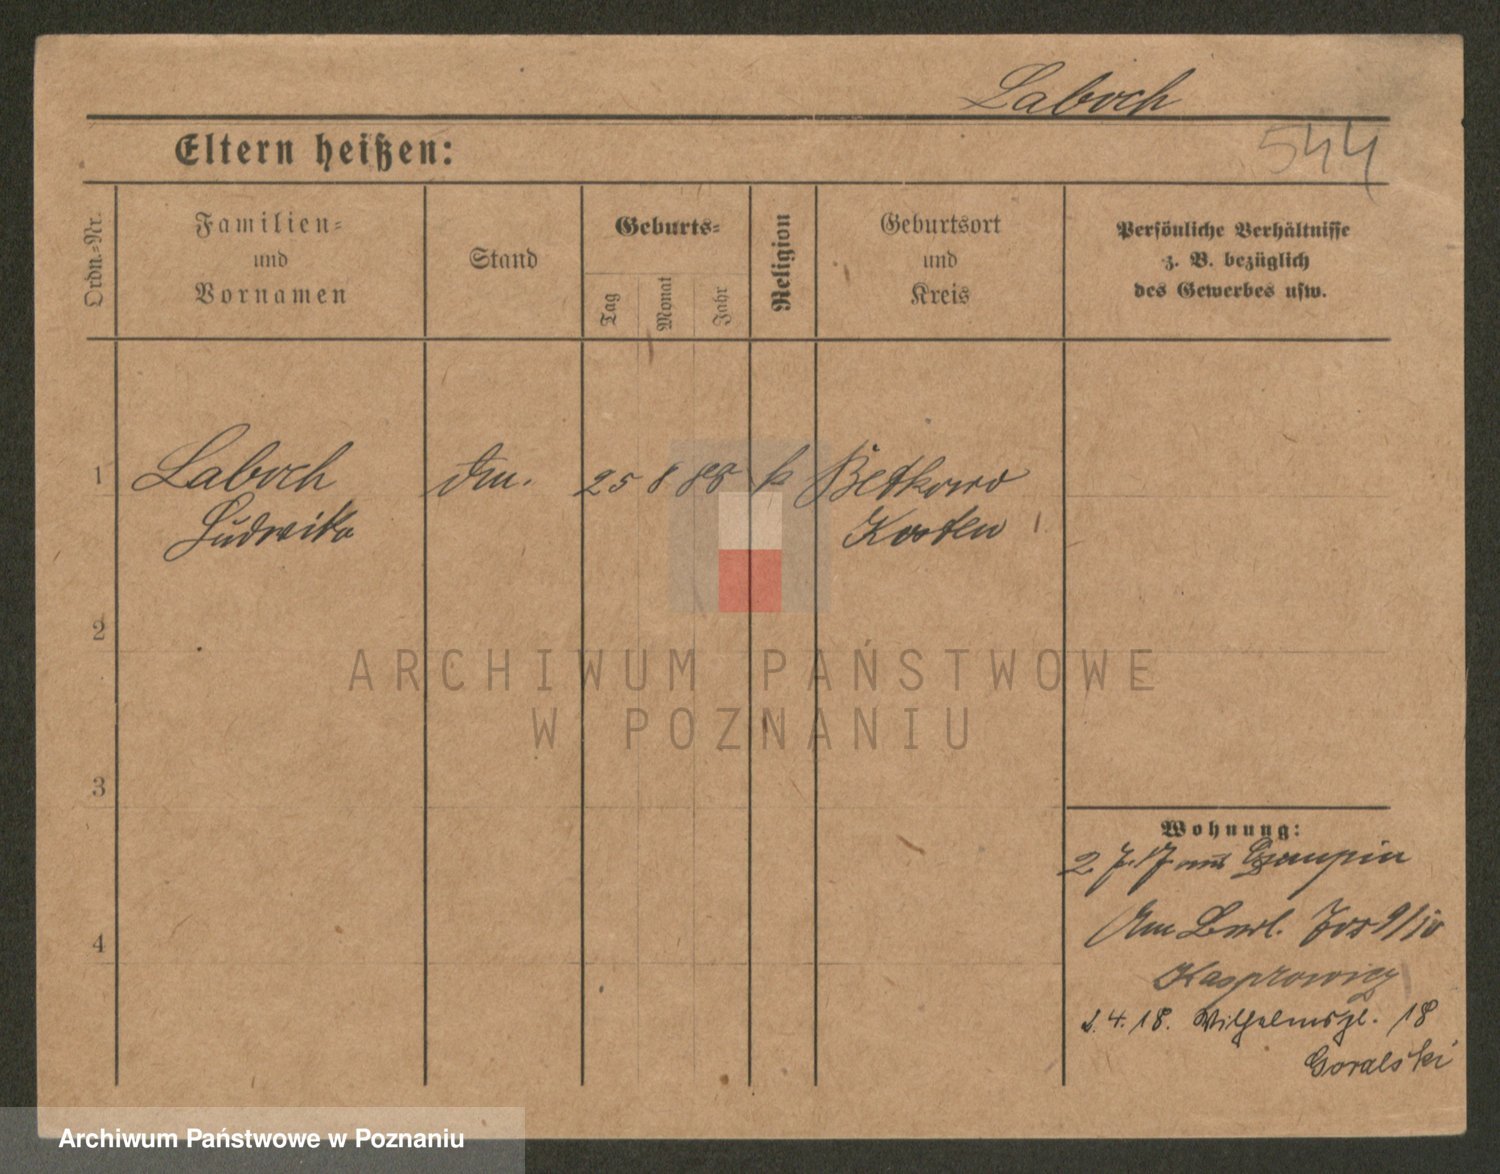 Laboch
544
Eltern heißen:
Ordn.-Nr.
Familien-
und
Vornamen
Stand
Geburts-
Tag
Monat
Jahr
Religion
Geburtsort
und
Kreis
Persönliche Verhältnisse
z. B. bezüglich
des Gewerbes usw.
1 Laboch 25 8 88 k Betkowo
Ludwika Kosten
2
3
4
Wohnung:
2. 7. 17 aus Czempin
Am Berl. Tor 9/10
Kasprowicz
2. 4. 18. Wilhelmspl. 18
Goralski
ARCHIWUM PAŃSTWOWE
W POZNANIU
Archiwum Państwowe w Poznaniu